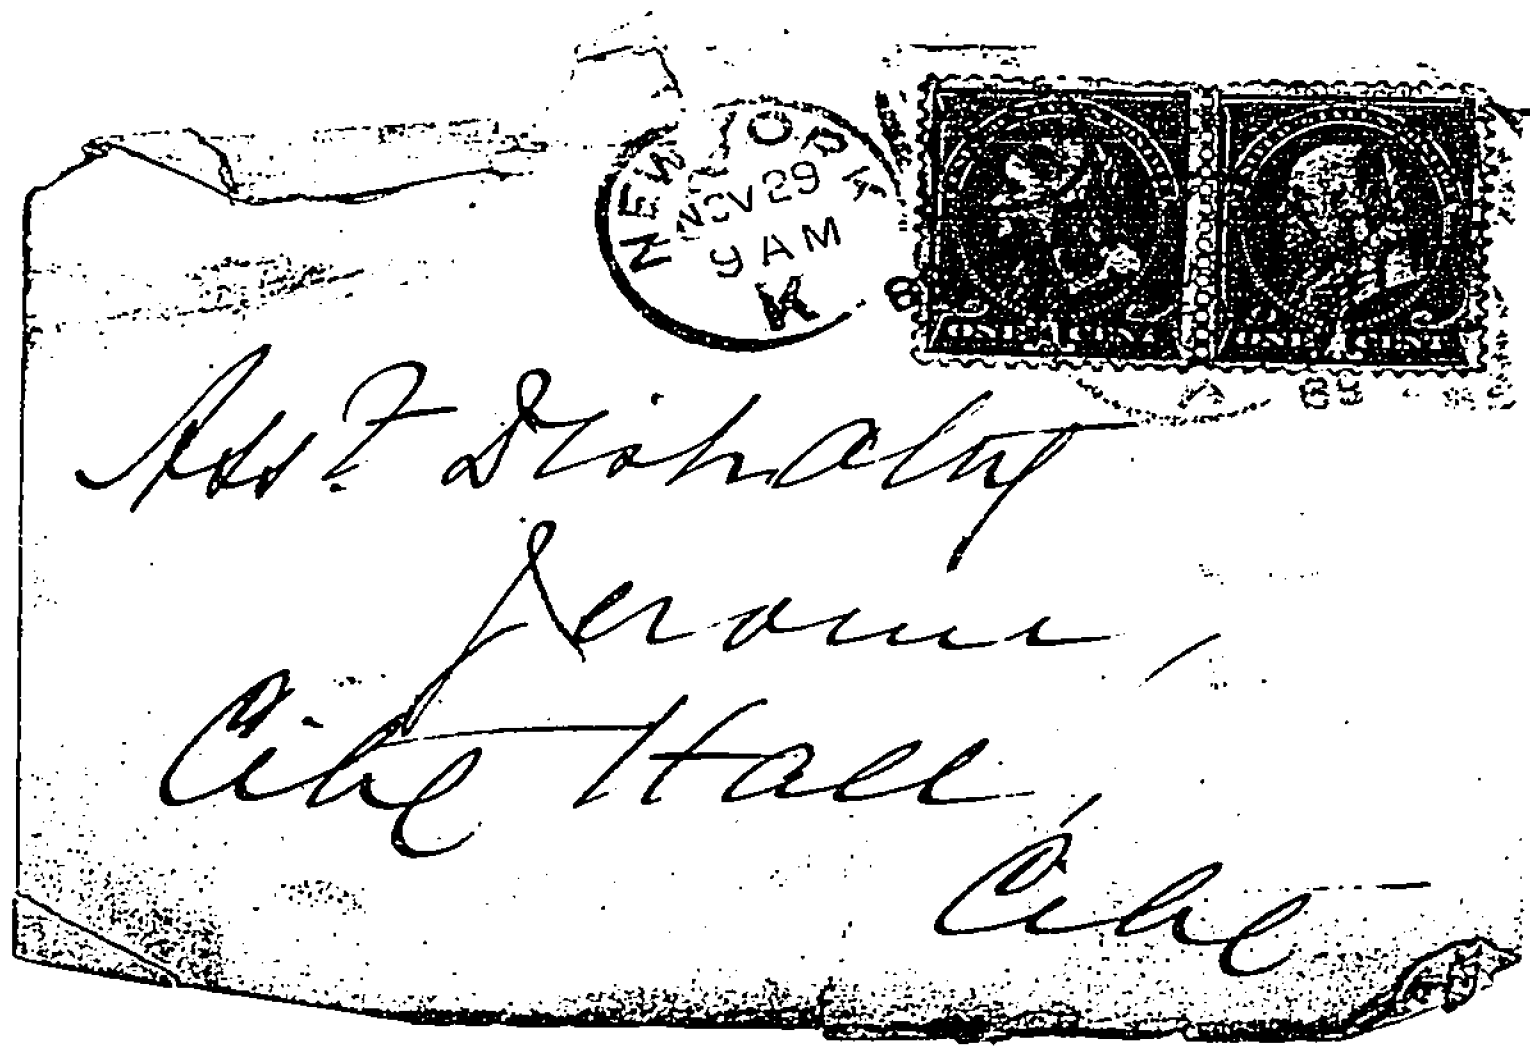 NEW YORK
NOV 29
9 AM
K
8
ONE 1 CENT
ONE 1 CENT
Asst. Dist. Atty
Jerome,
City Hall,
City